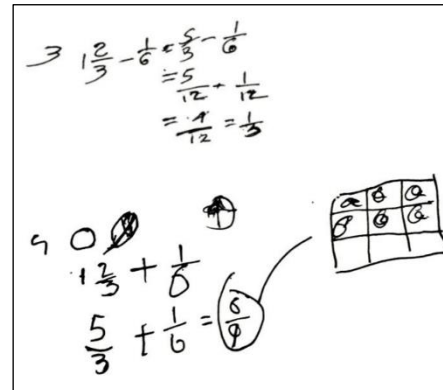 3 1 2/3 - 1/6 = 5/3 - 1/6
= 5/12 + 1/12
= 4/12 = 1/3
1 2/3 + 1/6
5/3 + 1/6 = 6/9